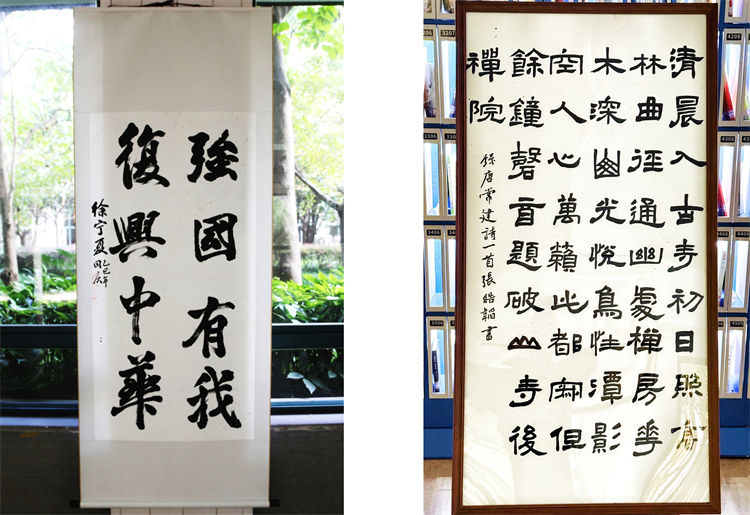 強國有我
復興中華
徐宁夏
乙巳年
国庆
清晨入古寺初日照高
林曲徑通幽處禪房花
木深山光悅鳥性潭影
空人心萬籟此都寂但
餘鐘磬音題破山寺後
禪院
錄唐常建詩一首張皓韜書